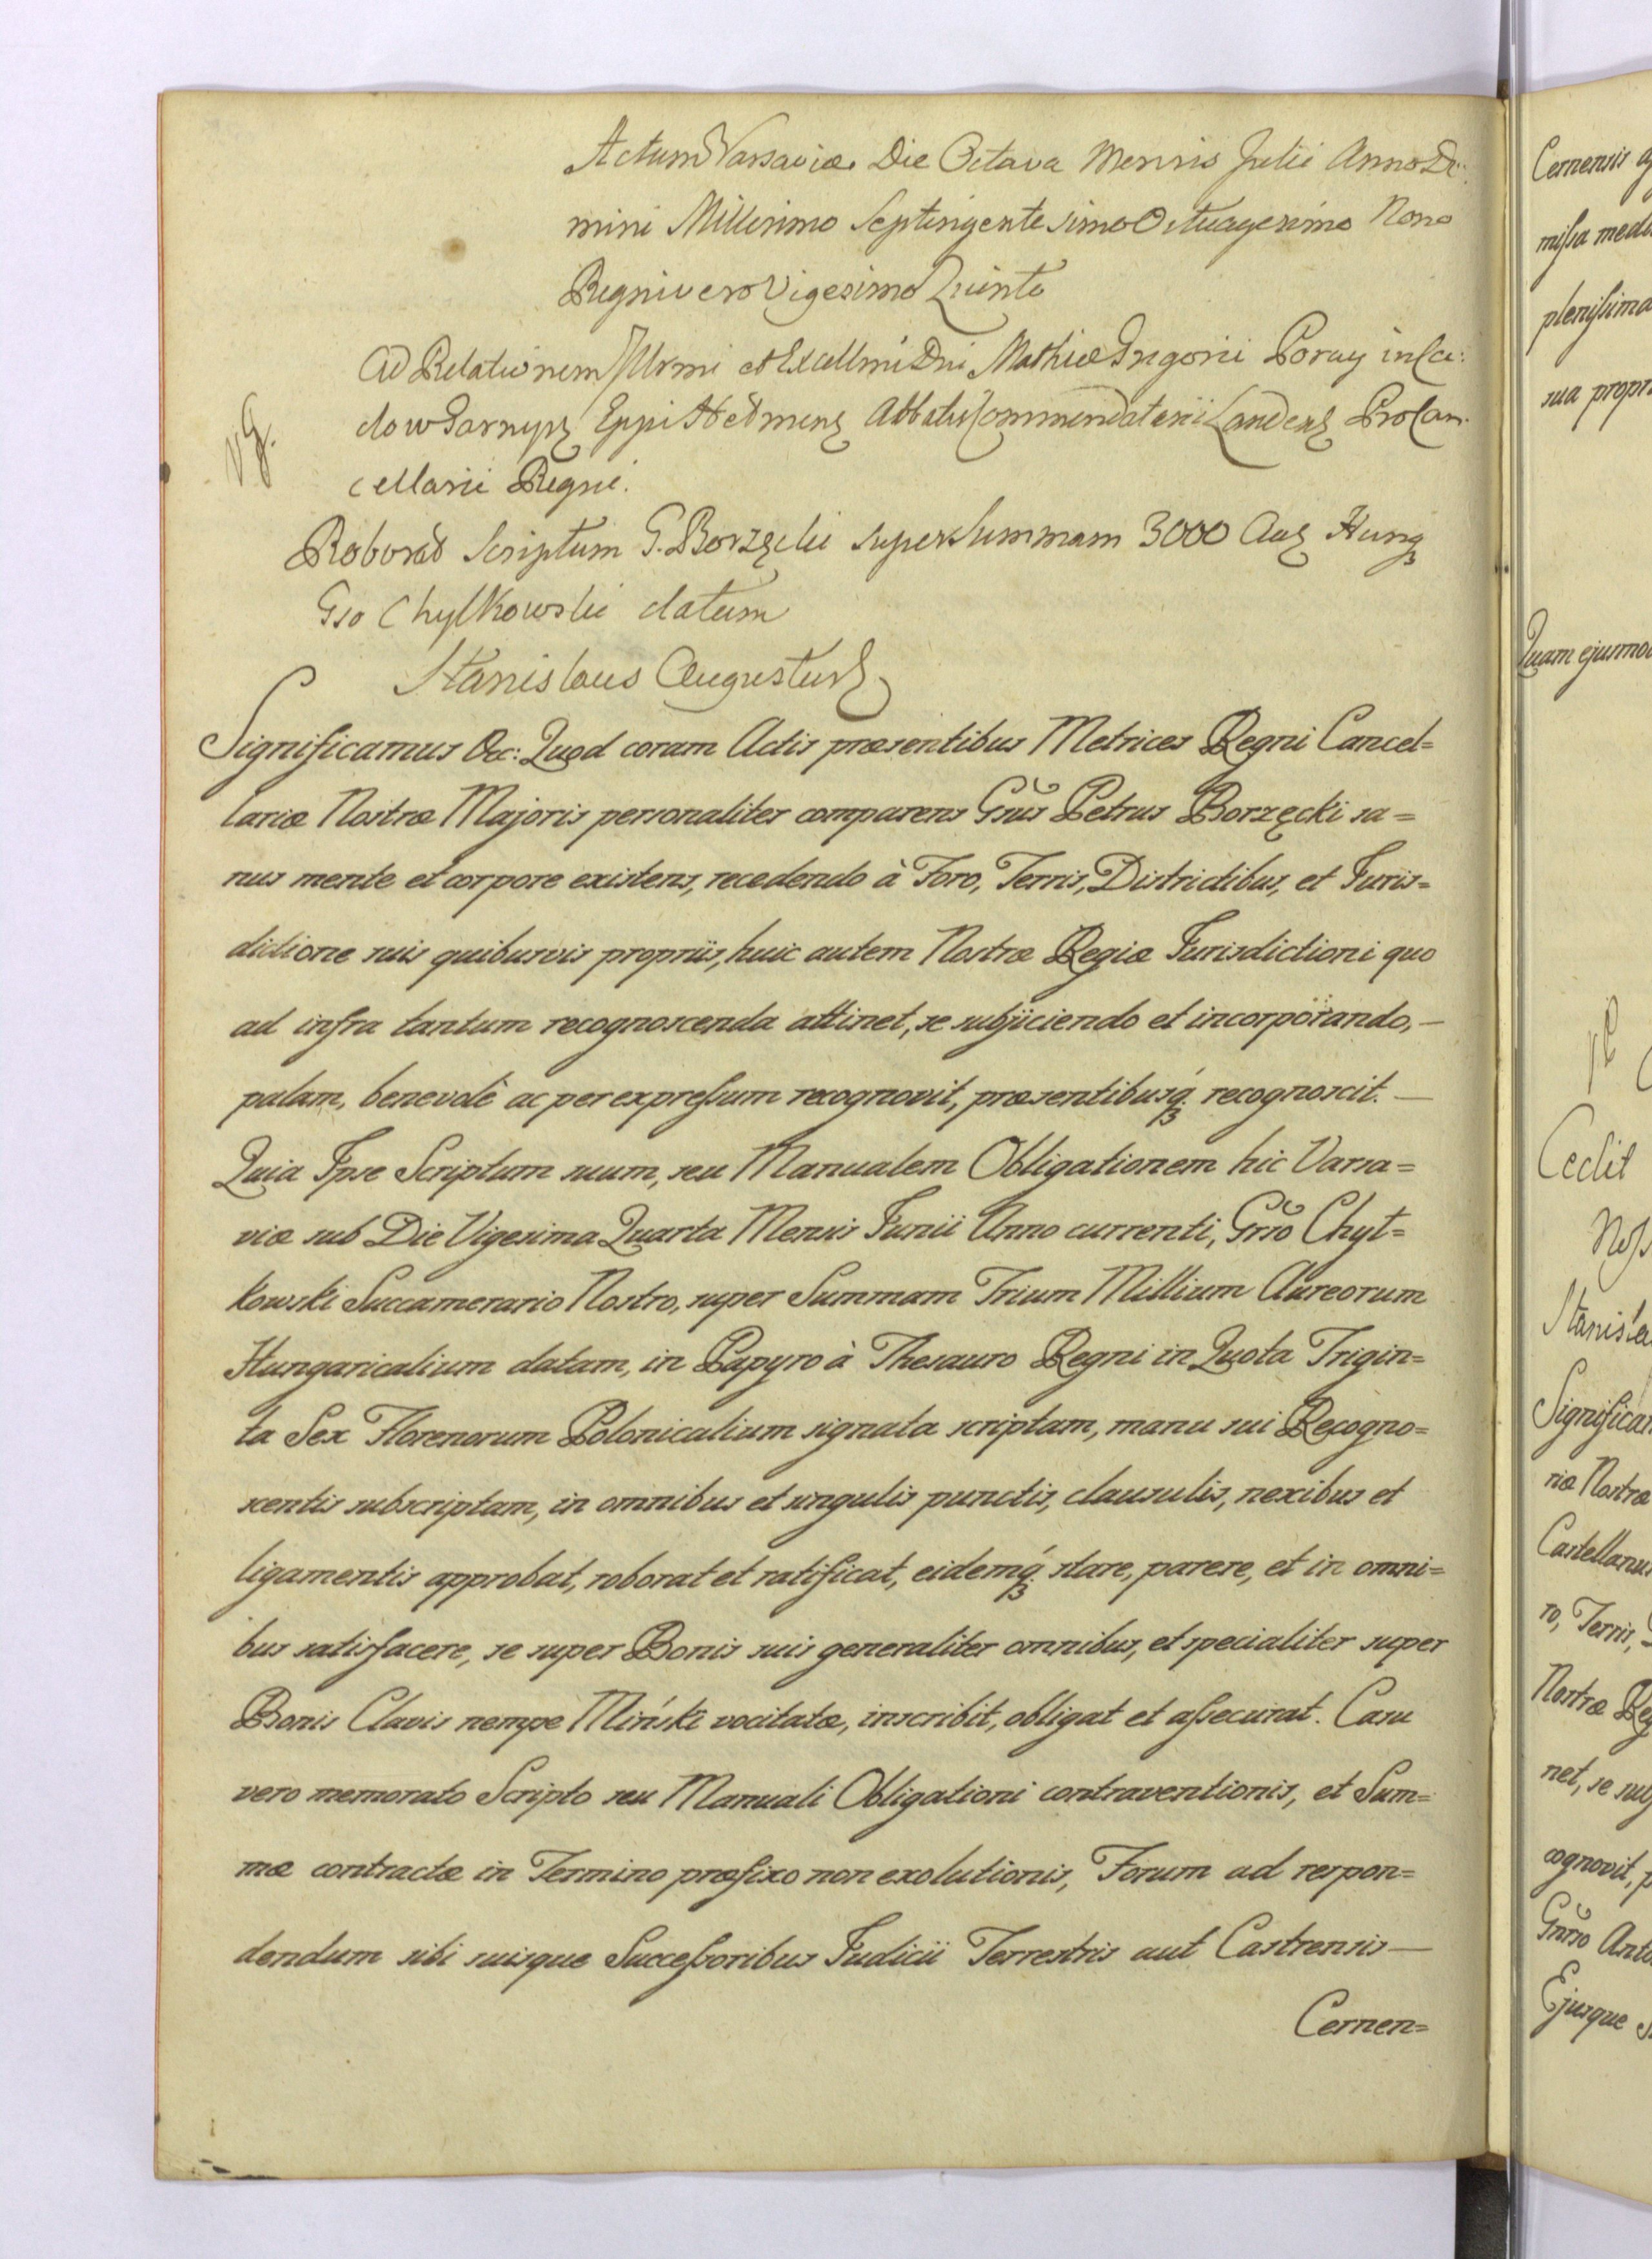 Actum Varsaviæ Die Octava Mensis Julii Anno Do:
mini Millesimo Septingentesimo Octuagesimo Nono
Regni vero Vigesimo Quinto
Ad Relationem Illrmi et Excellmi Dni Mathiæ Grzegorii Poray in Sci:
dow Garnysz Eppi Hełmens Abbatis Commendatarii Landens Procan-
cellarii Regni.
vg.
Roborat Scriptum G. Borzęcki super Summam 3000 Aur Hung
Gso Chylkowski datum
Stanislaus Augustus
Significamus &c: Quod coram Actis præsentibus Metrices Regni Cancel=
lariæ Nostræ Majoris personaliter comparens Gsus Petrus Borzęcki sa=
nus mente et corpore existens, recedendo à Foro, Terris, Districtibus, et Juris=
dictione suis quibusvis propriis, huic autem Nostræ Regiæ Jurisdictioni quo
ad infra tantum recognoscenda attinet, se subjiciendo et incorporando, —
palam, benevolè ac per expressum recognovit, præsentibusq; recognoscit. —
Quia Ipse Scriptum suum, seu Manualem Obligationem hic Varsa=
viæ sub Die Vigesima Quarta Mensis Junii Anno currenti, Grso Chyl=
kowski Succamerario Nostro, super Summam Trium Millium Aureorum
Hungaricalium datam, in Papyro à Thesauro Regni in Quota Trigin=
ta Sex Florenorum Polonicalium signata scriptam, manu sui Recogno=
scentis subscriptam, in omnibus et singulis punctis, clausulis, nexibus et
ligamentis approbat, roborat et ratificat, eidemq; stare, parere, et in omni=
bus satisfacere, se super Bonis suis generaliter omnibus, et specialiter super
Bonis Clavis nempe Mińskî vocitatæ, inscribit, obligat et assecurat. Casu
vero memorato Scripto seu Manuali Obligationi contraventionis, et Sum=
mæ contractæ in Termino præfixo non exolutionis, Forum ad respon=
dendum sibi suisque Successoribus Judicii Terrestris aut Castrensis —
Cernen=
Cernensis
missa
plenissima
sua
Quam
Cedit
Stanisla
Significam
riæ Nostræ
Castellanus
ro, Terris,
Nostræ Reg
net, se sub
cognovit, p
Gnrso Anto
Ejusque